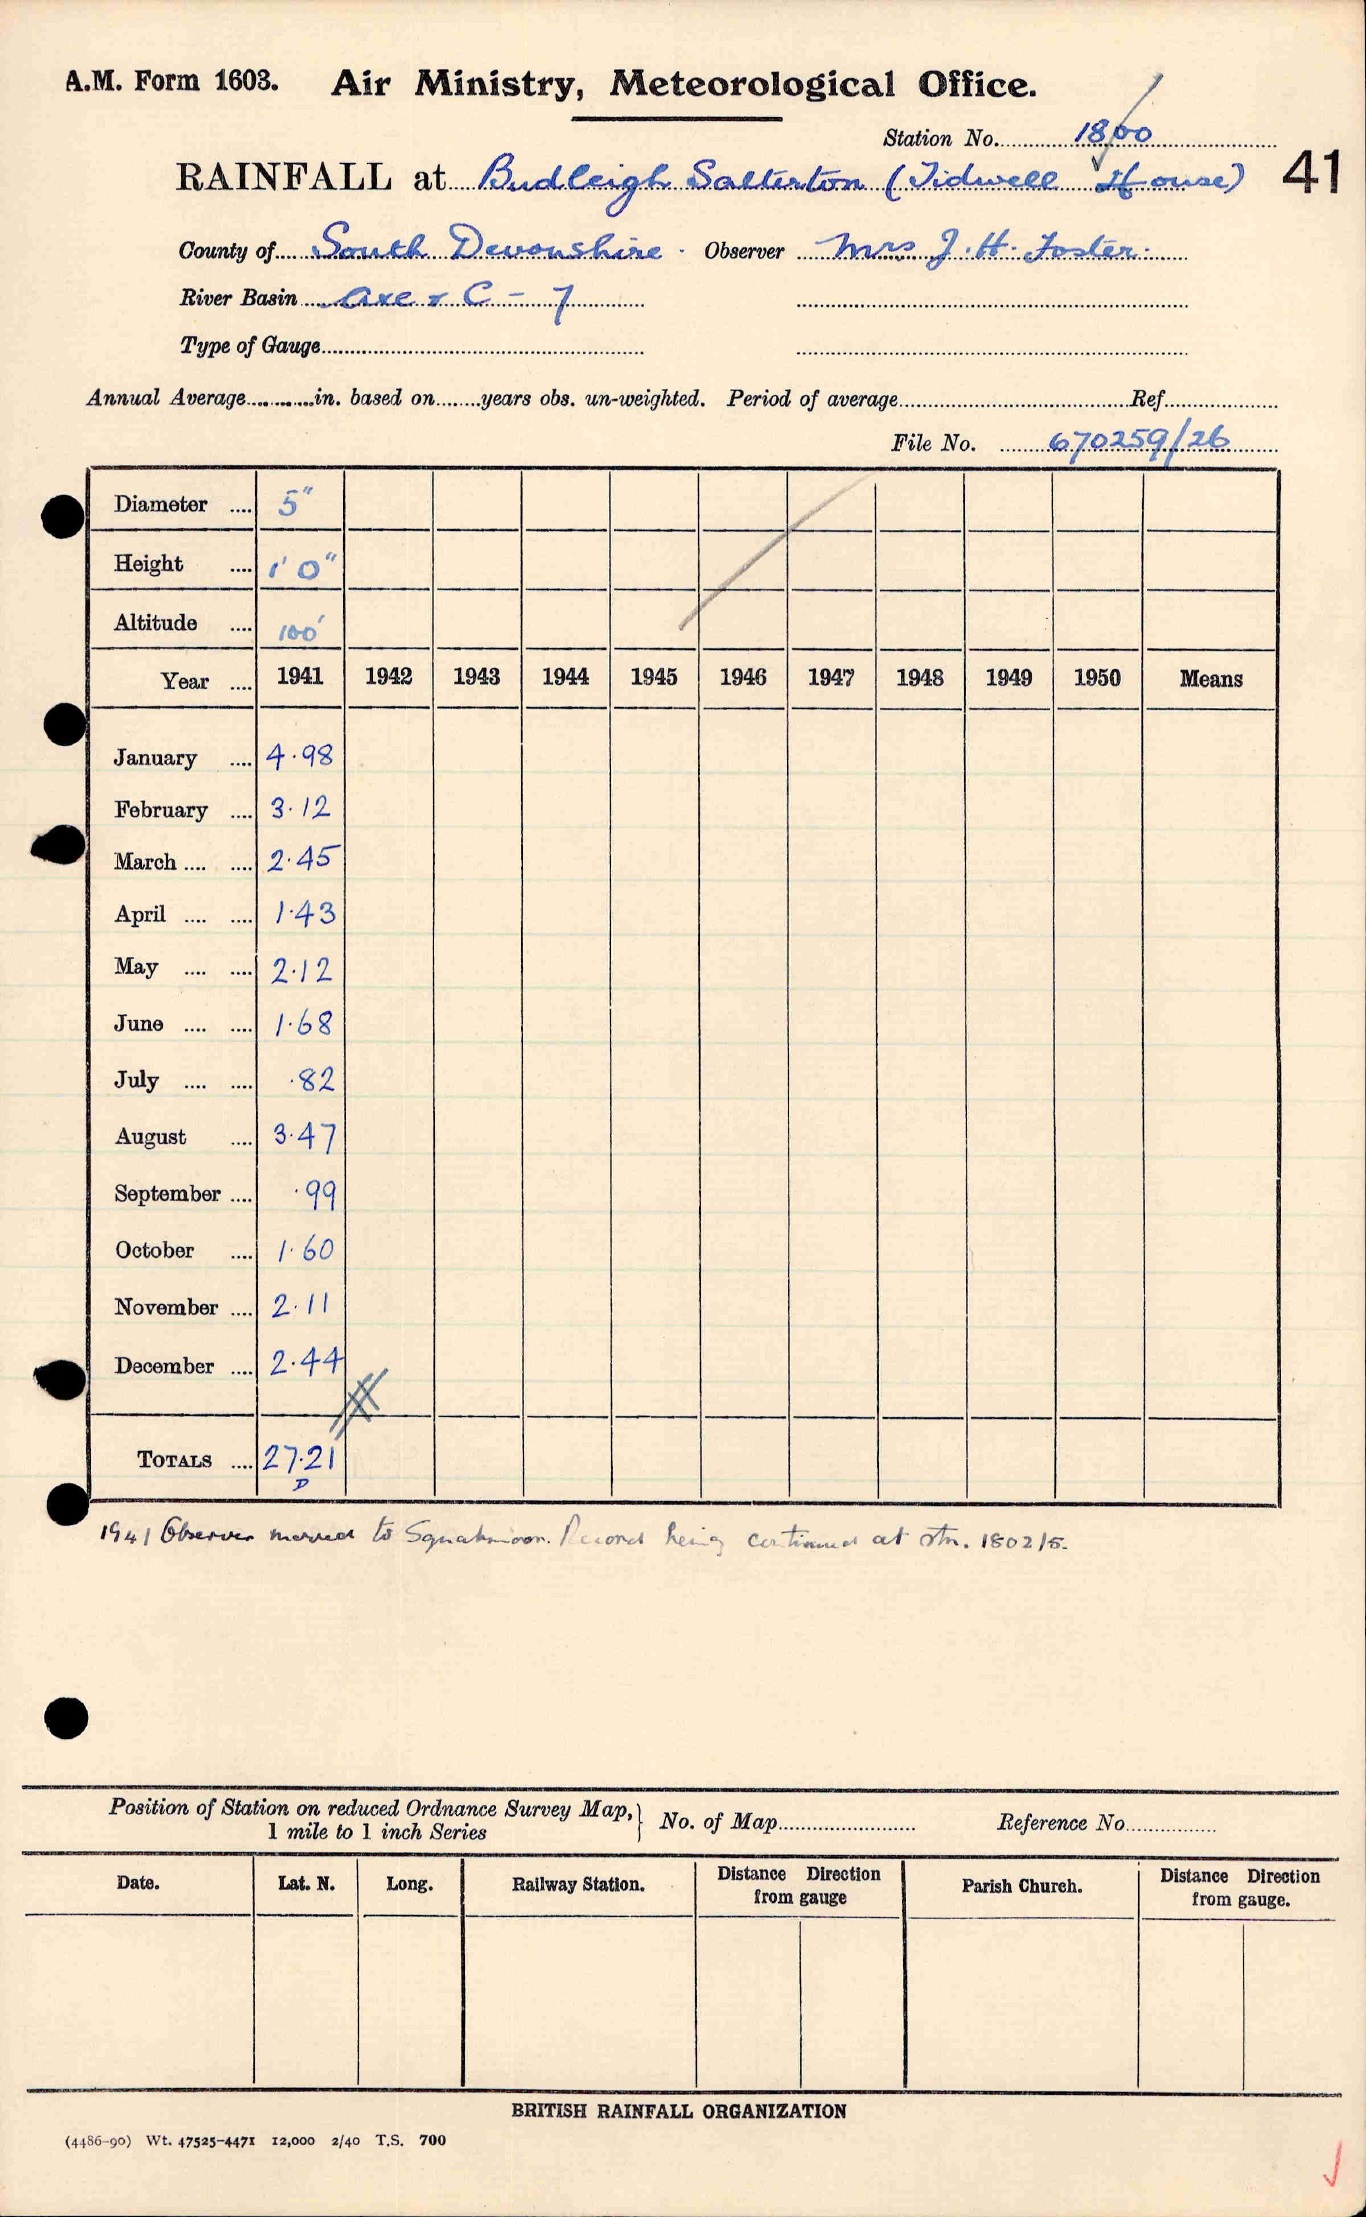 A.M. Form 1603. Air Ministry, Meteorological Office.
Station No. 1800
RAINFALL at Budleigh Salterton (Tidwell House) 41
County of South Devonshire. Observer Mrs J. H. Foster.
River Basin Axe & C - 7
Type of Gauge
Annual Average in. based on years obs. un-weighted. Period of average Ref.
File No. 670259/26
Diameter .... 5"
Height .... 1' 0"
Altitude .... 100'
Year .... 1941 1942 1943 1944 1945 1946 1947 1948 1949 1950 Means
January .... 4.98
February .... 3.12
March .... .... 2.45
April .... .... 1.43
May .... .... 2.12
June .... .... 1.68
July .... .... .82
August .... 3.47
September .... .99
October .... 1.60
November .... 2.11
December .... 2.44
TOTALS .... 27.21
D
1941 Observer moved to Squabmoor. Record being continued at stn. 1802/5.
Position of Station on reduced Ordnance Survey Map, } No. of Map Reference No.
1 mile to 1 inch Series
Date. Lat. N. Long. Railway Station. Distance Direction from gauge Parish Church. Distance Direction from gauge.
BRITISH RAINFALL ORGANIZATION
(4486-90) Wt. 47525-4471 12,000 2/40 T.S. 700